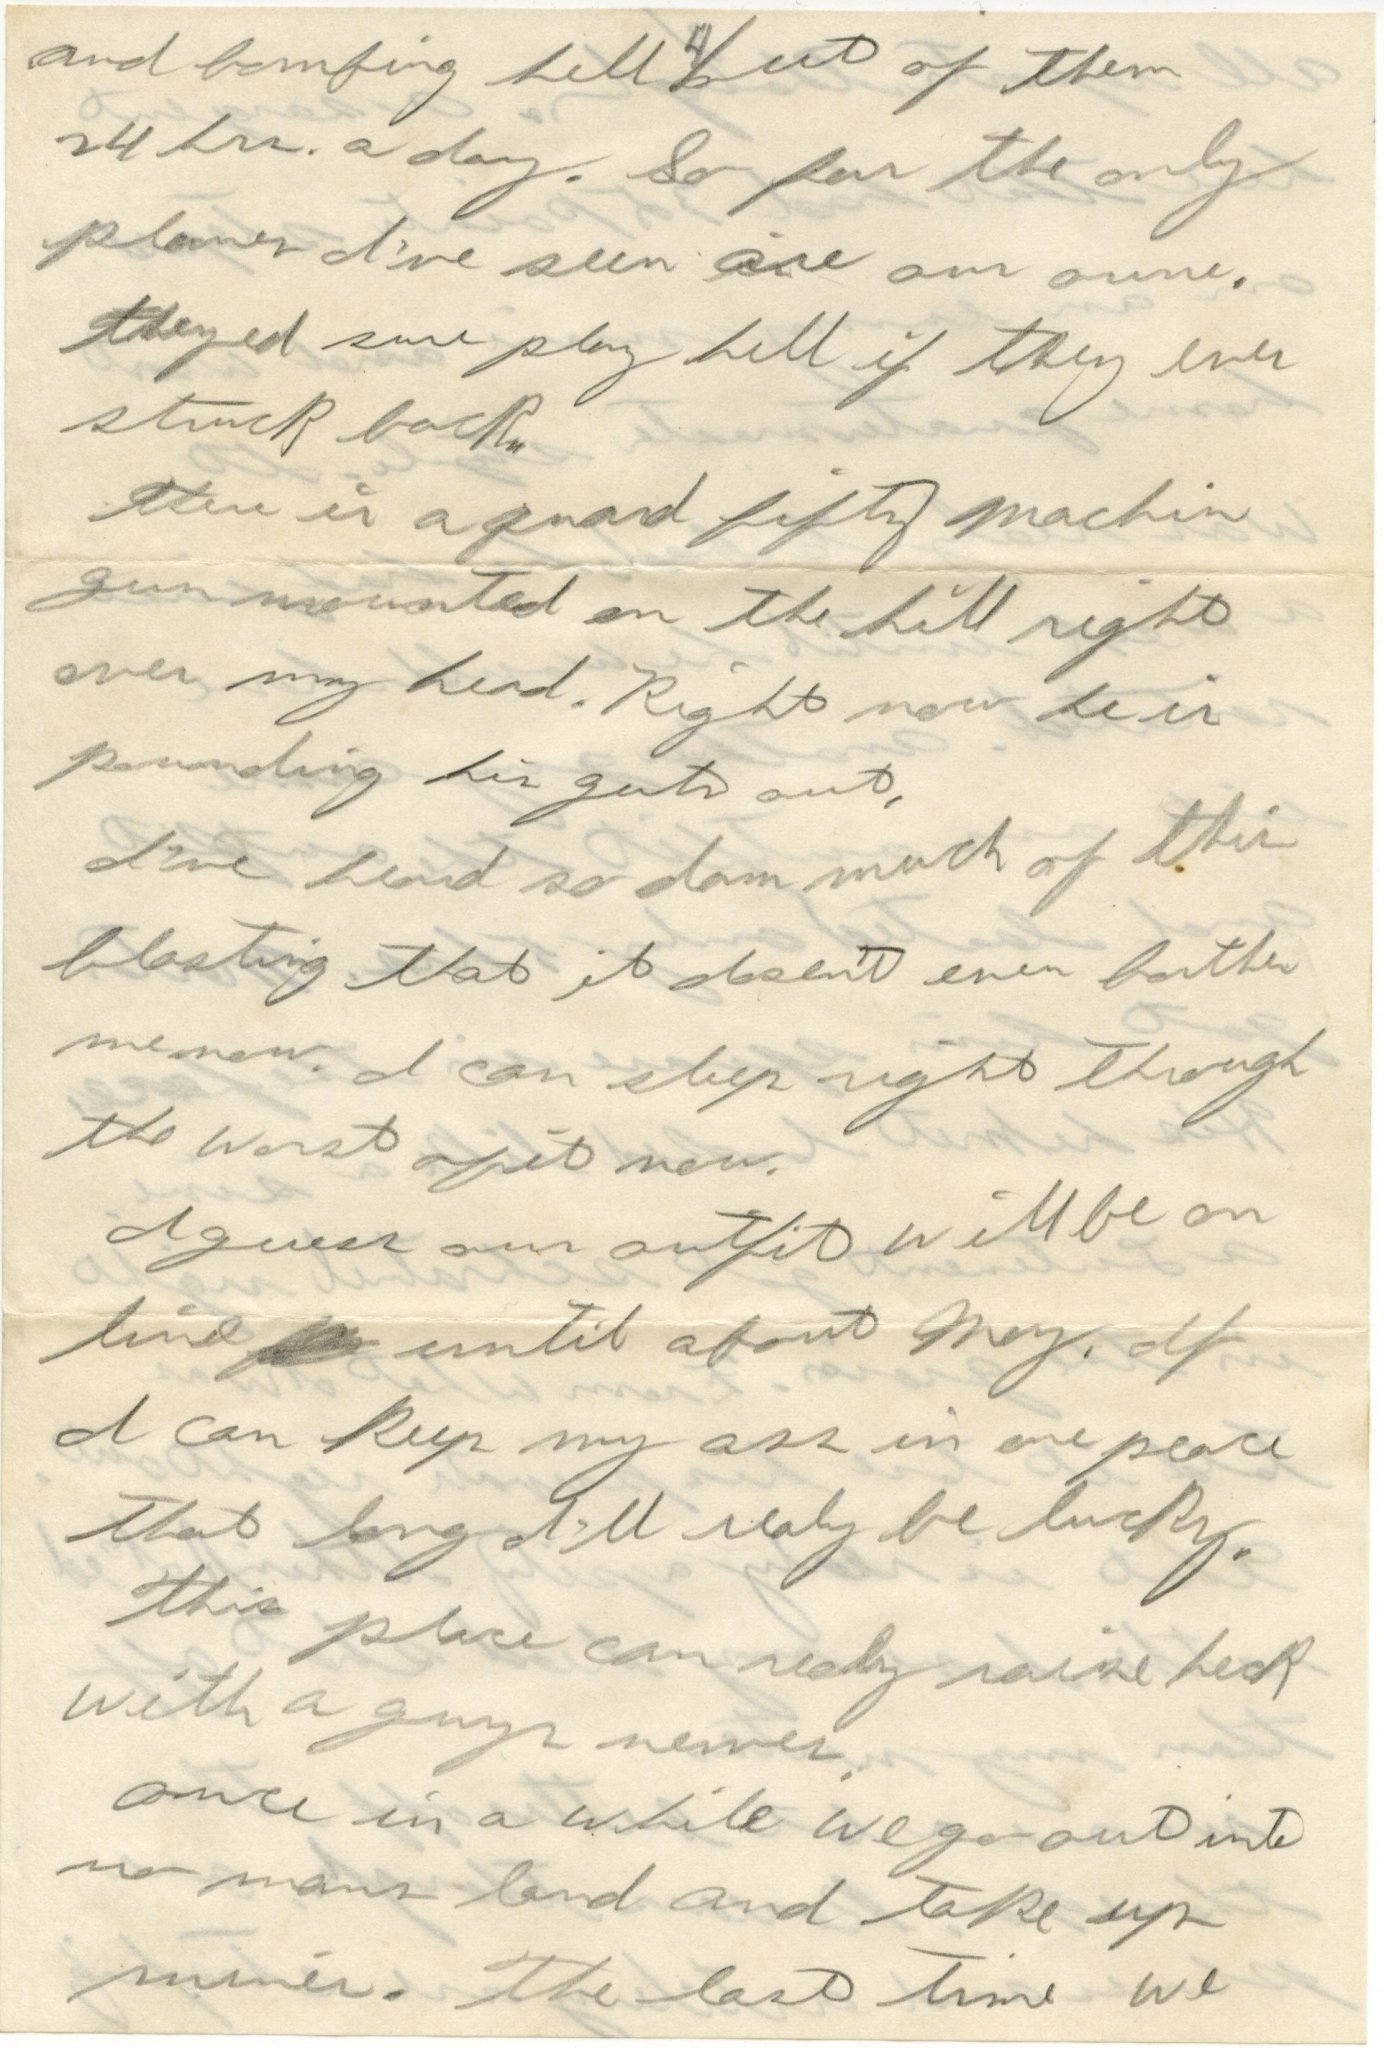 4/
and bombing hell out of them
24 hrs. a day. So far the only
planes I've seen are our owne.
theyed sure play hell if they ever
struck back.
there is a quard fifty machin
gun mounted on the hill right
over my head. Right now he is
pounding his guts out.
I've heard so dam much of this
blasting that it dosent even bother
me now. I can sleep right through
the worst of it now.
I guess our outfit will be on
line until about May. If
I can keep my ass in one peace
that long I'll realy be lucky.
this place can realy raise heck
with a guys nerves.
once in a while we go out into
no mans land and take up
mines. The last time we